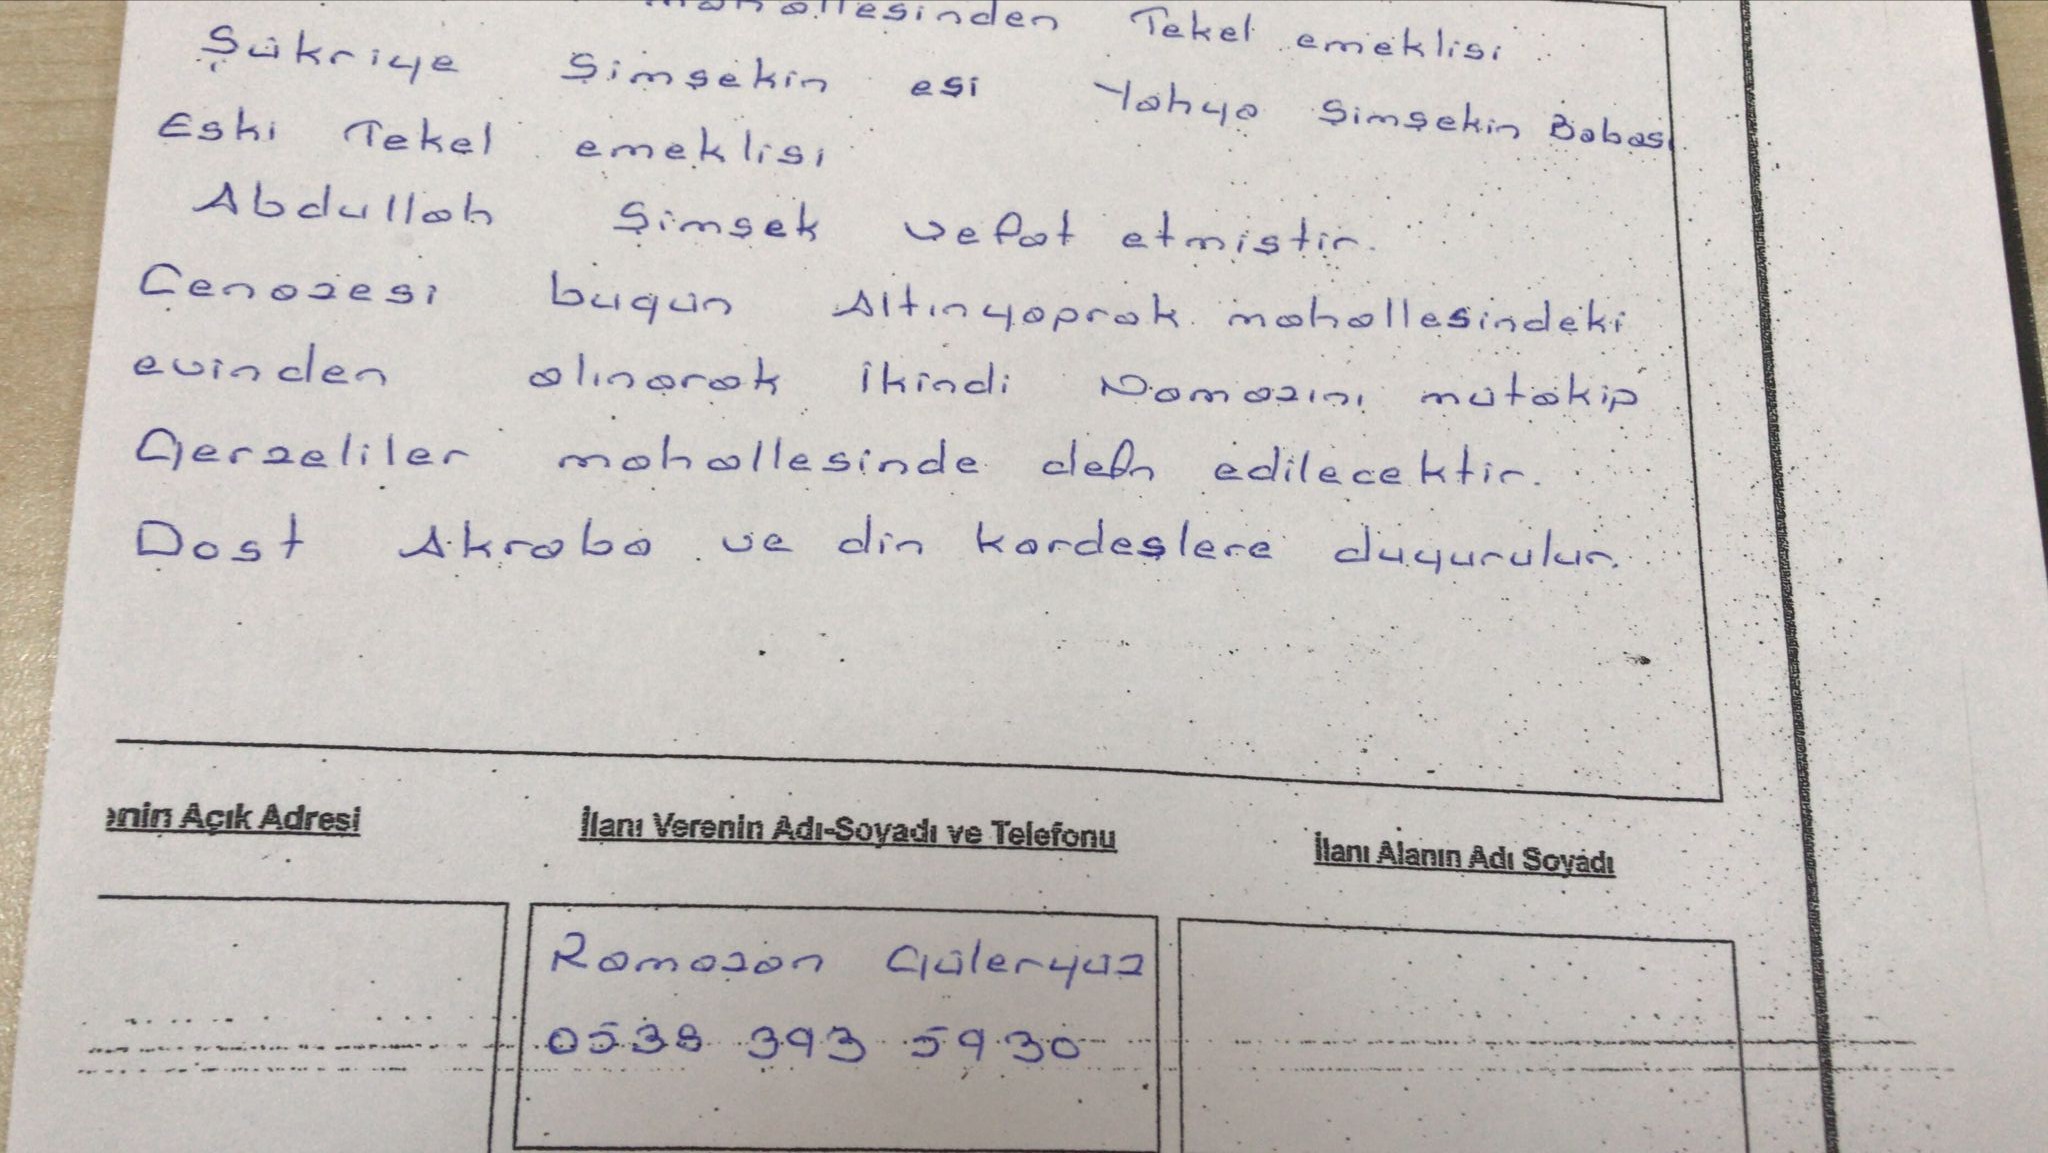 mahallesinden Tekel emeklisi
Şükriye Şimşekin eşi Yahya Şimşekin Babası
Eski Tekel emeklisi
Abdullah Şimşek vefat etmiştir.
Cenazesi bugün Altınyaprak mahallesindeki
evinden alınarak İkindi Namazını mütakip
Gerzeliler mahallesinde defn edilecektir.
Dost Akraba ve din kardeşlere duyurulur.
enin Açık Adresi İlanı Verenin Adı-Soyadı ve Telefonu İlanı Alanın Adı Soyadı
Ramazan Güleryüz
0538 393 5930